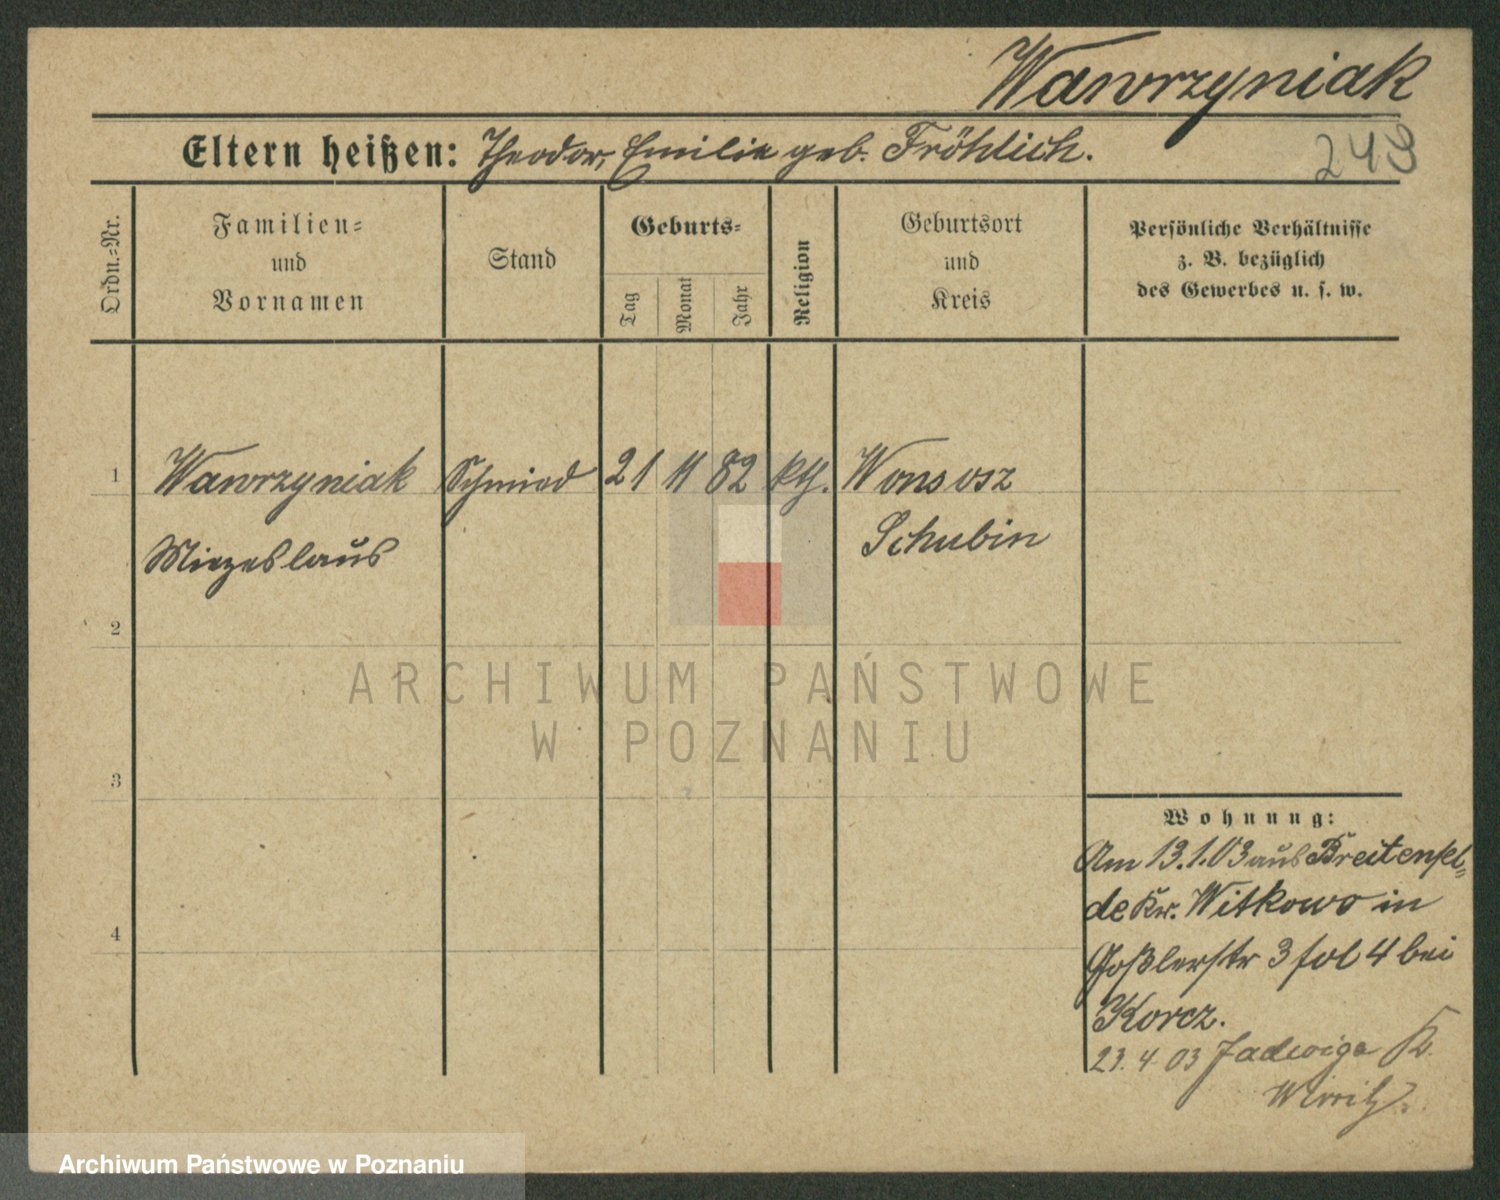 Wawrzyniak
Eltern heißen: Theodor, Emilie geb. Fröhlich.
243
Ordn.-Nr.
Familien-
und
Vornamen
Stand
Geburts-
Tag
Monat
Jahr
Religion
Geburtsort
und
Kreis
Persönliche Verhältnisse
z. B. bezüglich
des Gewerbes u. s. w.
1 Wawrzyniak Schmied 21 11 82 kth. Wonsosz
Miezeslaus Schubin
2
ARCHIWUM PAŃSTWOWE
W POZNANIU
3
Wohnung:
Am 13.1.03 aus Breitenfel-
de Kr. Witkowo in
Goßlerstr 3 fol 4 bei
4
Korcz.
23.4.03 Jadwiga K.
Wirsitz.
Archiwum Państwowe w Poznaniu